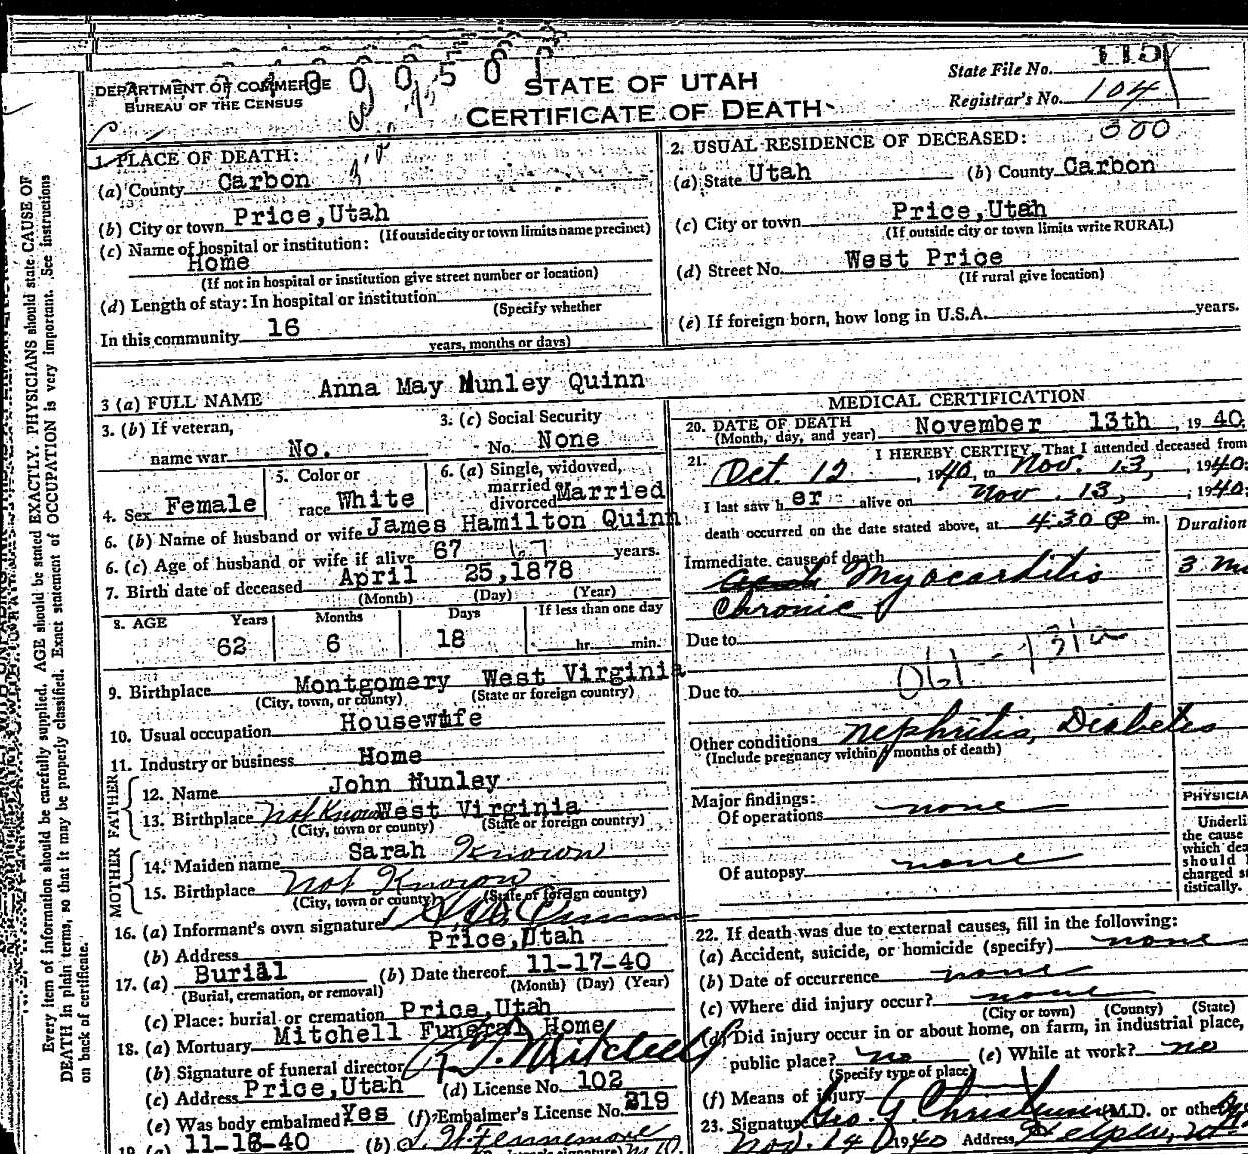 DEPARTMENT OF COMMERCE
BUREAU OF THE CENSUS
STATE OF UTAH
CERTIFICATE OF DEATH
State File No. 115
Registrar's No. 104
300
1. PLACE OF DEATH:
(a) County Carbon
(b) City or town Price,Utah
(If outside city or town limits name precinct)
(c) Name of hospital or institution:
Home
(If not in hospital or institution give street number or location)
(d) Length of stay: In hospital or institution
(Specify whether
In this community 16
years, months or days)
2. USUAL RESIDENCE OF DECEASED:
(a) State Utah (b) County Carbon
(c) City or town Price,Utah
(If outside city or town limits write RURAL)
(d) Street No. West Price
(If rural give location)
(e) If foreign born, how long in U.S.A. years.
3 (a) FULL NAME Anna May Nunley Quinn
3. (b) If veteran,
name war No.
3. (c) Social Security
No. None
4. Sex Female
5. Color or
race White
6. (a) Single, widowed,
married or
divorced Married
6. (b) Name of husband or wife James Hamilton Quinn
6. (c) Age of husband or wife if alive 67 67 years.
7. Birth date of deceased April 25,1878
(Month) (Day) (Year)
8. AGE Years Months Days If less than one day
62 6 18 hr. min.
9. Birthplace Montgomery West Virginia
(City, town, or county) (State or foreign country)
10. Usual occupation Housewife
11. Industry or business Home
FATHER
12. Name John Nunley
13. Birthplace Not Known West Virginia
(City, town or county) (State or foreign country)
MOTHER
14. Maiden name Sarah Known
15. Birthplace Not Known
(City, town or county) (State or foreign country)
16. (a) Informant's own signature
(b) Address Price,Utah
17. (a) Burial (b) Date thereof 11-17-40
(Burial, cremation, or removal) (Month) (Day) (Year)
(c) Place: burial or cremation Price,Utah
18. (a) Mortuary Mitchell Funeral Home
(b) Signature of funeral director Mitchell
(c) Address Price,Utah (d) License No. 102
(e) Was body embalmed Yes (f) Embalmer's License No. 219
19. (a) 11-16-40 (b)
MEDICAL CERTIFICATION
20. DATE OF DEATH
(Month, day, and year) November 13th, 1940.
21. I HEREBY CERTIFY, That I attended deceased from
Oct. 12, 1940, to Nov. 13, 1940.
I last saw her alive on Nov. 13, 1940.
death occurred on the date stated above, at 4:30 P m.
Duration
Immediate cause of death
Myocarditis 3
Chronic
Due to
Due to
Other conditions Nephritis, Diabetes
(Include pregnancy within months of death)
Major findings:
Of operations none
Of autopsy none
PHYSICIA
Underli
the cause
which dea
should
charged st
tistically.
22. If death was due to external causes, fill in the following:
(a) Accident, suicide, or homicide (specify) none
(b) Date of occurrence none
(c) Where did injury occur? none
(City or town) (County) (State)
(d) Did injury occur in or about home, on farm, in industrial place,
public place? no (e) While at work? no
(Specify type of place)
(f) Means of injury
23. Signature Geo. G. Christensen (M.D. or other)
Nov. 14 1940 Address Helper, Utah
Every item of information should be carefully supplied. AGE should be stated EXACTLY. PHYSICIANS should state CAUSE OF
DEATH in plain terms, so that it may be properly classified. Exact statement of OCCUPATION is very important. See instructions
on back of certificate.